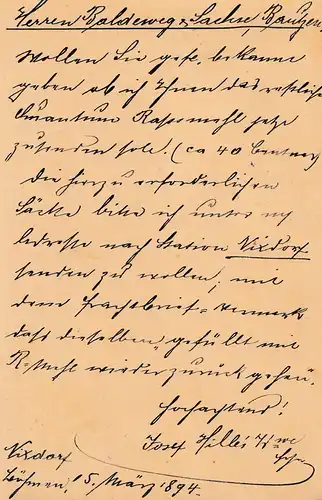 Herren Baldeweg & Sachse, Bautzen.
Wollen Sie gefl. bekannt
geben ob ich Ihnen das restliche
Quantum Rapsmehl jetzt
zusenden soll. (ca 40 Centner)
Die hierzu erforderlichen
Säcke bitte ich unter
Adresse nach Station Nixdorf
senden zu wollen, mit
dem Frachtbrief-Vermerk
dass dieselben „gefüllt mit
R-Mehl wieder zurück gehen.
Hochachtend!
Josef Hille's Wwe
Nixdorf
Böhmen, 5. März 1894